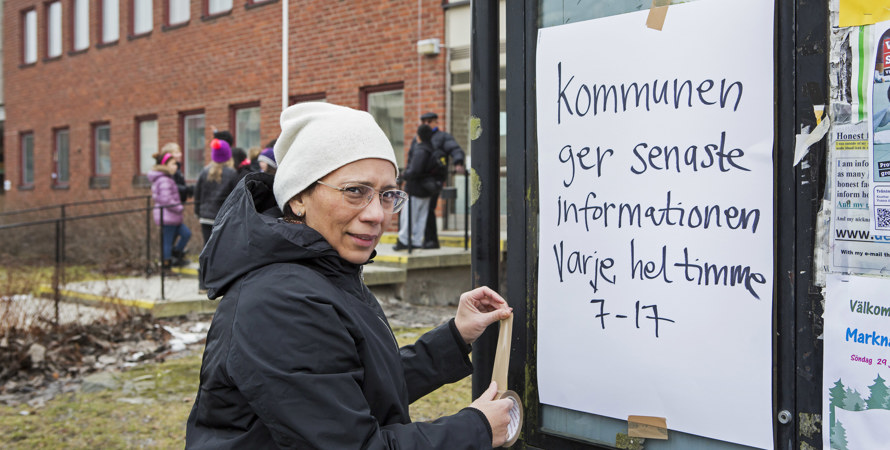 Kommunen
ger senaste
informationen
Varje heltimme
7-17
Honest
I am info
as many
honest fa
and my nicke
www.de
With my e-mail the
Välkom
Markna
Söndag 29